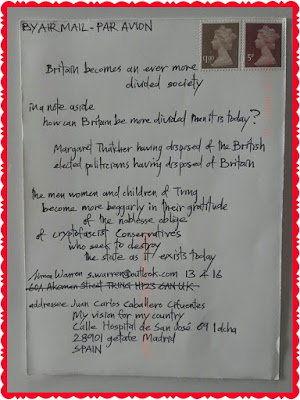 BY AIR MAIL - PAR AVION
1.00
5p
Britain becomes an ever more
divided society
in a note aside
how can Britain be more divided than it is today?
Margaret Thatcher having disposed of the British
elected politicians having disposed of Britain
the men women and children of Tring
become more beggarly in their gratitude
of the noblesse oblige
of cryptofascist Conservatives
who seek to destroy
the state as it exists today
Simon Warren s.warren@outlook.com 13 4 16
60A Akeman Street TRING HP23 6AN UK
addressee Juan Carlos Caballero Cifuentes
My vision for my country
Calle Hospital de San José 69 1dcha
28901 getafe Madrid
SPAIN